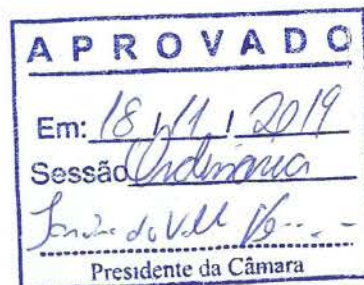 APROVADO
Em: 18/11/2019
Sessão Ordinária
do Vall
Presidente da Câmara